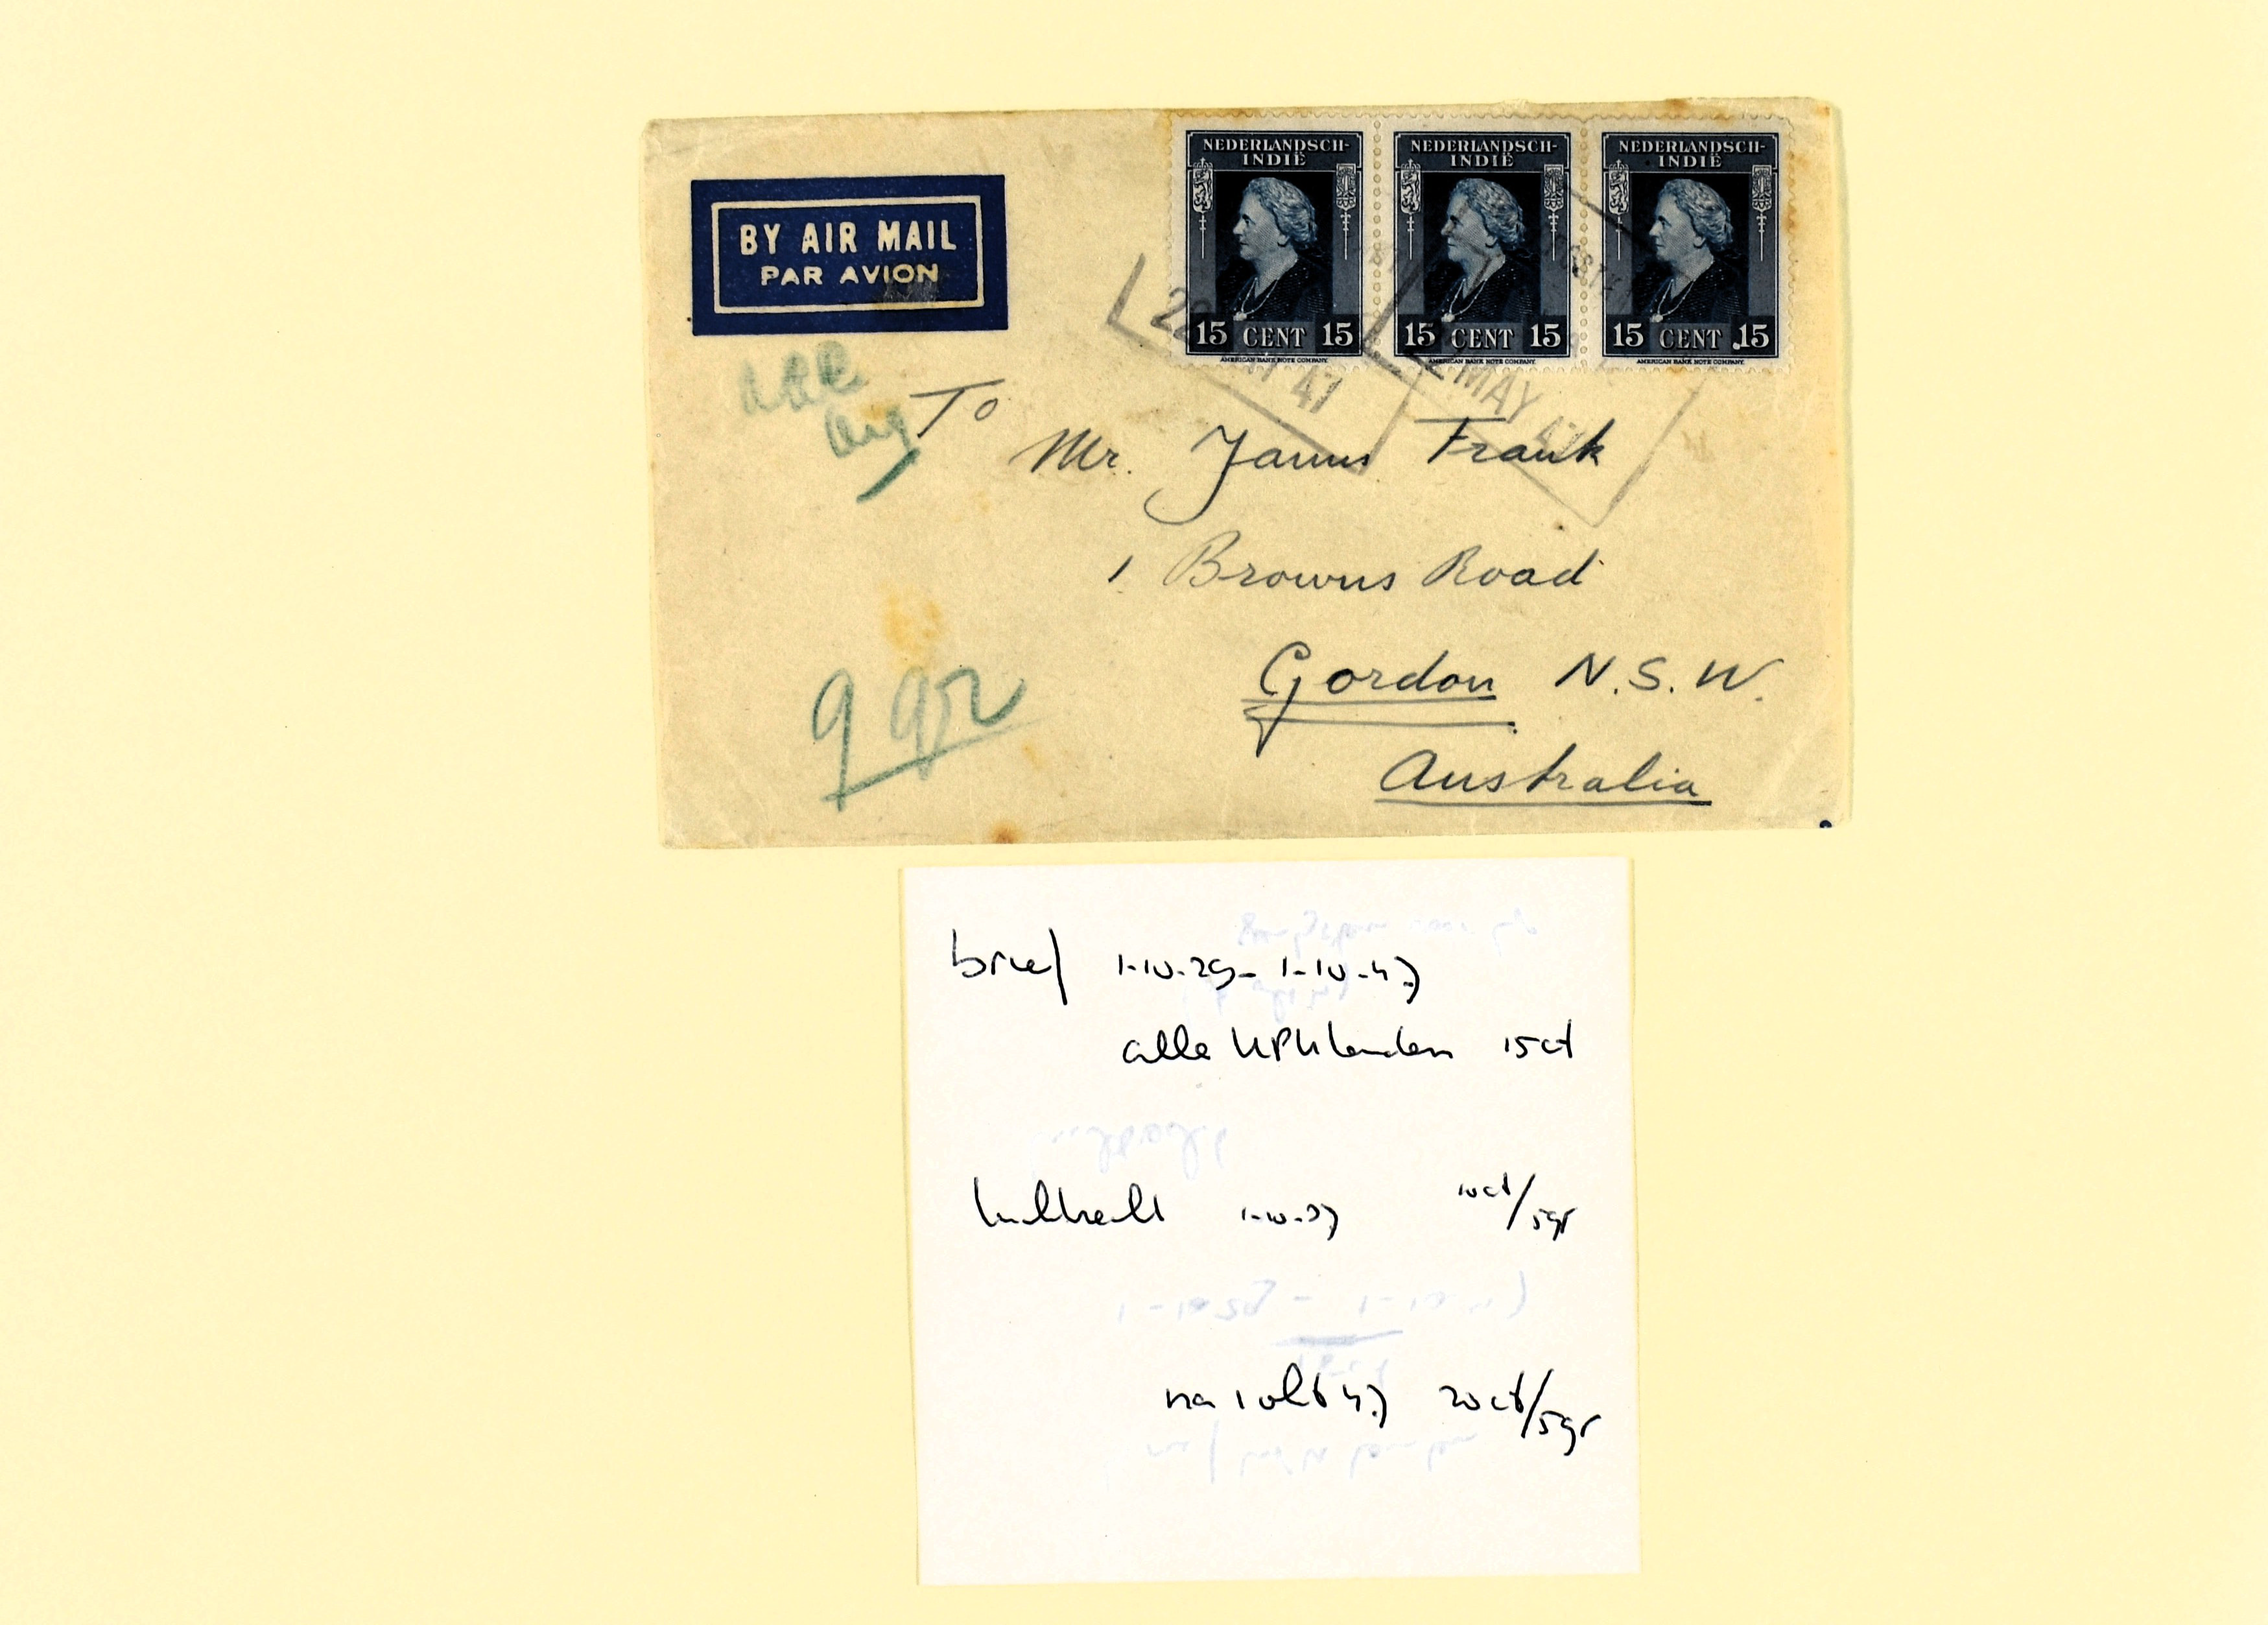 BY AIR MAIL
PAR AVION
NEDERLANDSCH-
INDIË
15 CENT 15
AMERICAN BANK NOTE COMPANY.
NEDERLANDSCH-
INDIË
15 CENT 15
AMERICAN BANK NOTE COMPANY.
NEDERLANDSCH-
INDIË
15 CENT 15
AMERICAN BANK NOTE COMPANY.
22 47
MAY
To
Mr. James Frank
1 Browns Road
Gordon N.S.W.
Australia
9 gr
brief 1-10-29 - 1-10-47
alle UPU landen 15 ct
luchtrecht 1-10-37 10ct/5gr
na 1 okt 47 20ct/5gr